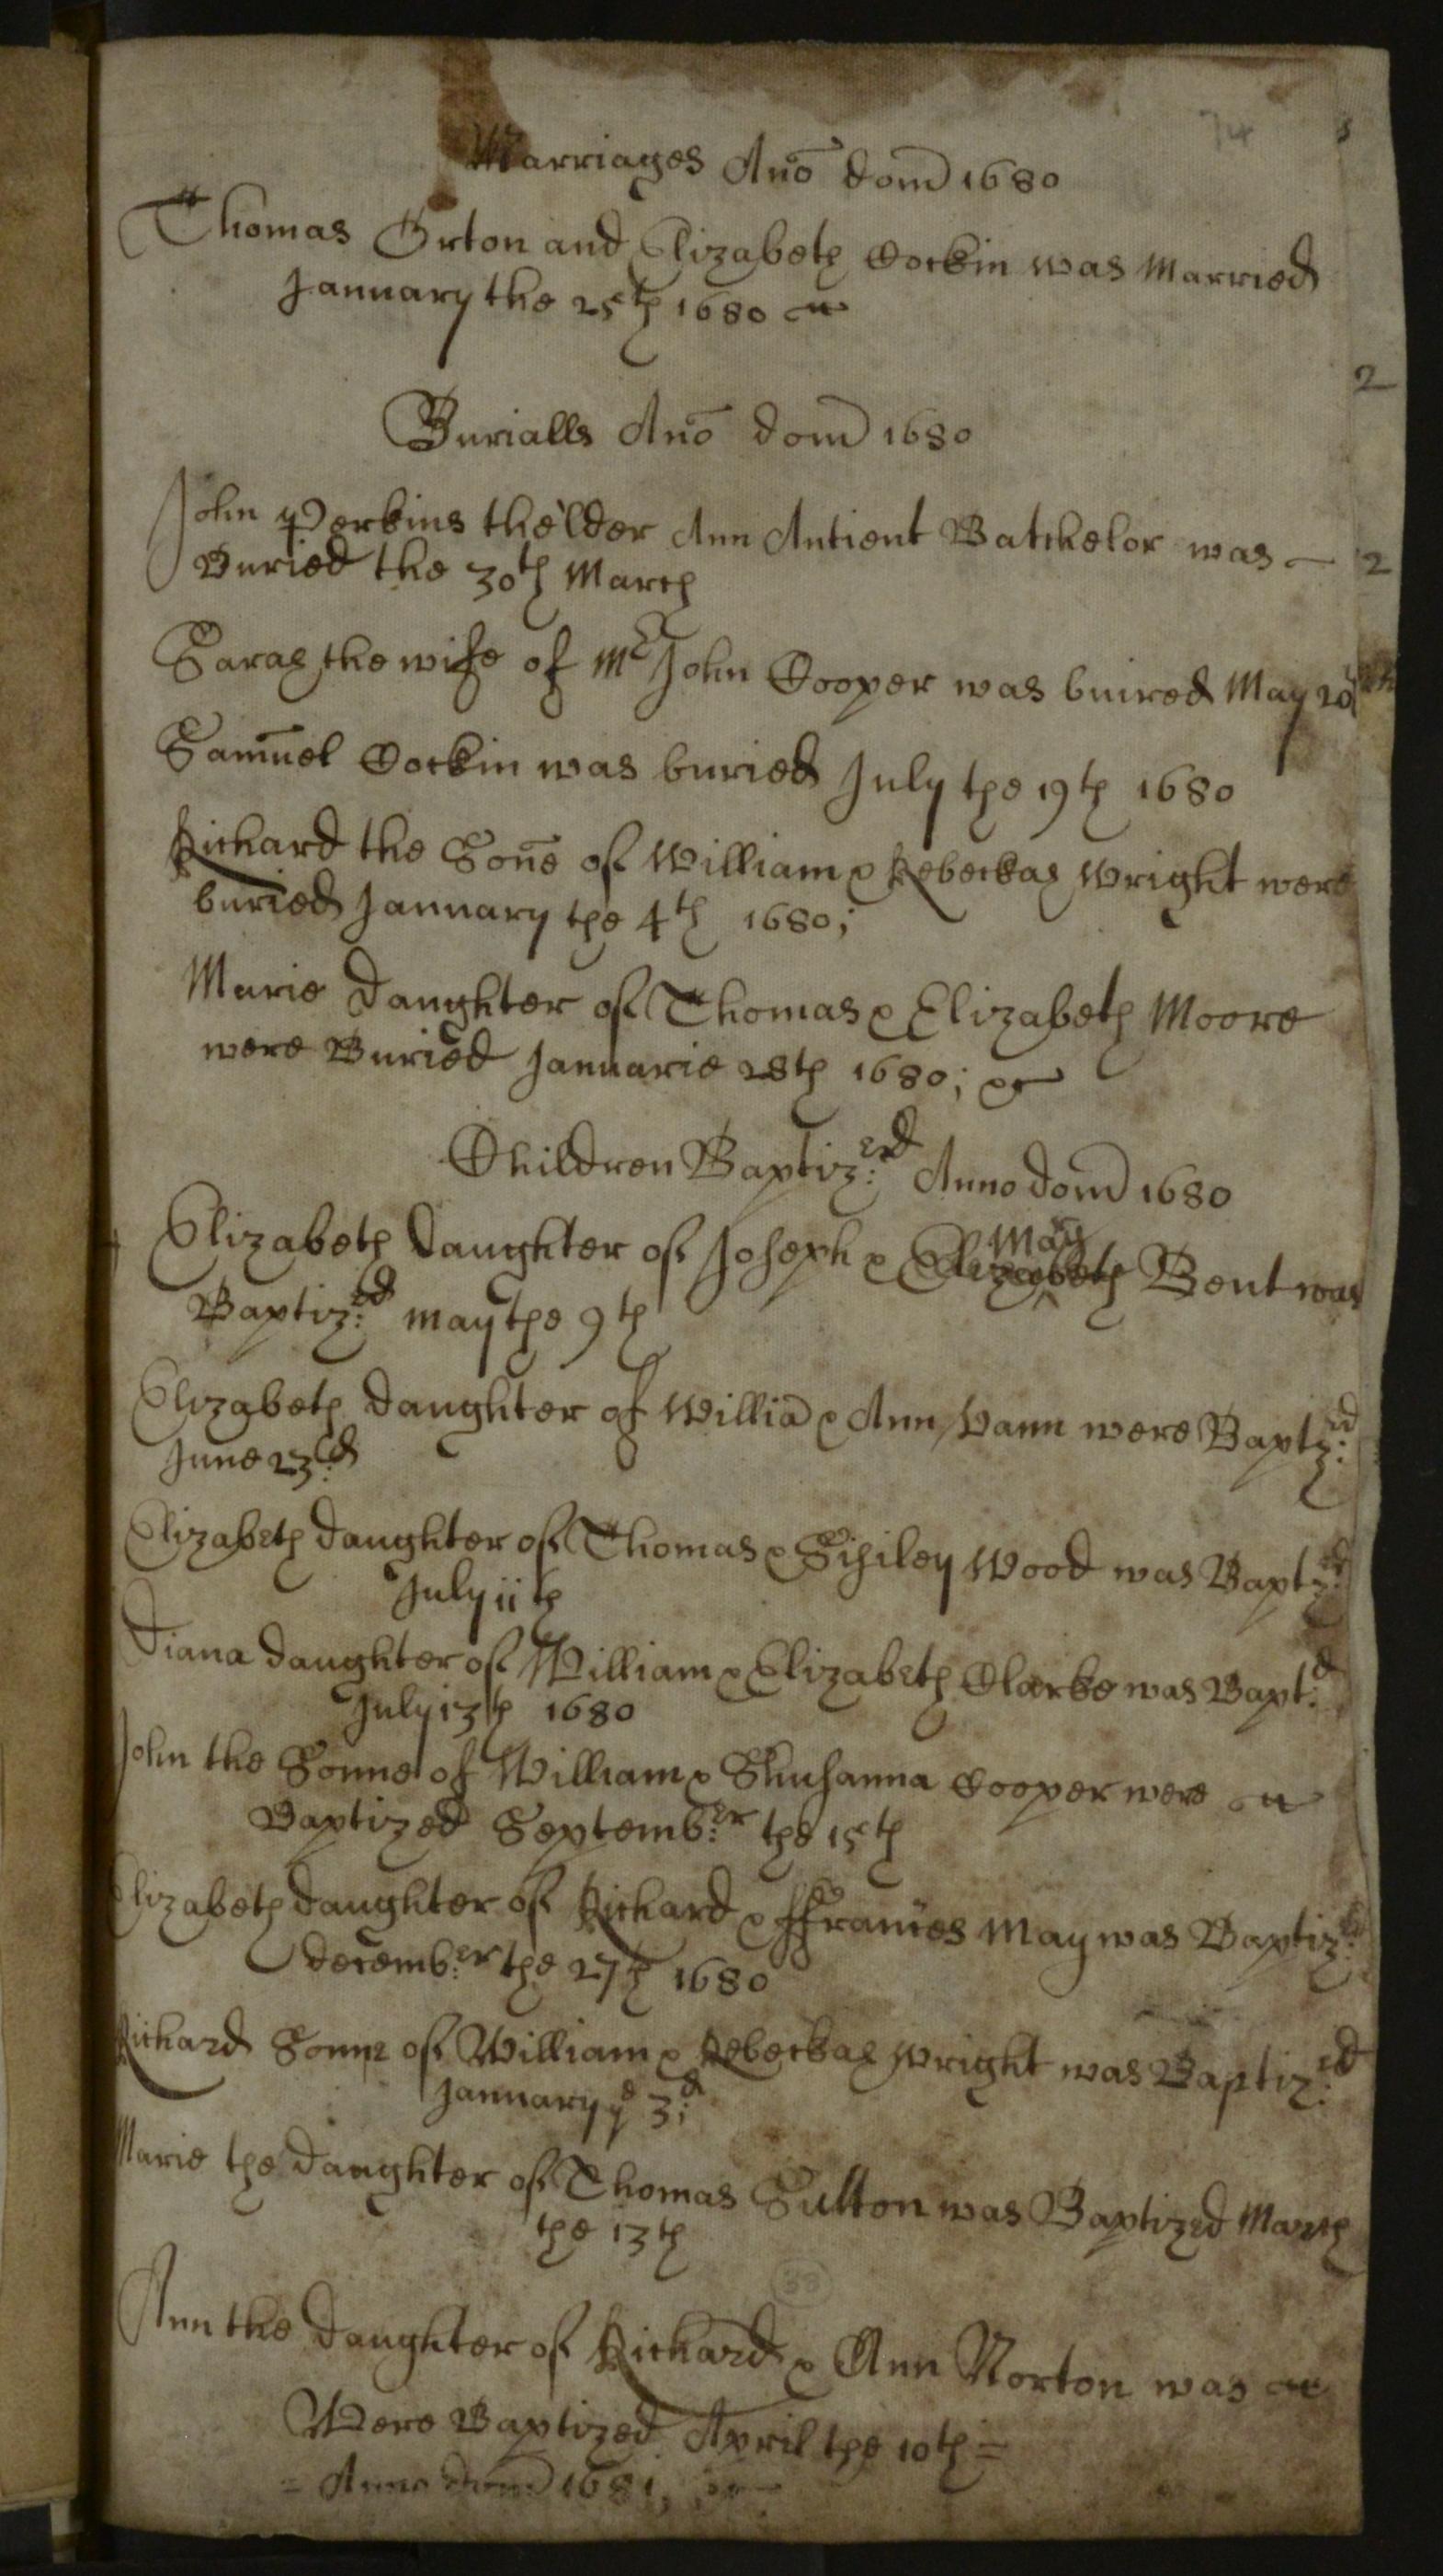 74
Marriages Ano dom 1680
Thomas Orton and Elizabeth Cockin was Married
January the 25th 1680
2
Burialls Ano dom 1680
John Perkins the'lder Ann Antient Batchelor was
2
Buried the 30th March
Sarah the wife of Mr John Cooper was buired May 20
Samuel Cockin was buried July the 19th 1680
Richard the Sone of William & Rebeckah Wright were
buried January the 4th 1680;
Marie daughter of Thomas & Elizabeth Moore
were Buried Januarie 28th 1680; &c
Children Baptiz:ed Anno dom 1680
May
Elizabeth daughter of Joseph & Elizabeth Bent was
Baptiz:ed May the 9th
Elizabeth daughter of Willia & Ann Vann were Baptz:ed
June 23:d
Elizabeth daughter of Thomas & Sisiley Wood was Baptz:ed
July 11th
Diana daughter of William & Elizabeth Clarke was Bapt:d
July 13th 1680
John the Sonne of William & Shusanna Cooper were
Baptized Septemb:er the 15th
Elizabeth daughter of Richard & ffrances May was Baptiz:ed
decemb:er the 27th 1680
Richard Sonne of William & Rebeckah Wright was Baptiz:ed
January ye 3:d
Marie the daughter of Thomas Sutton was Baptized March
the 13th
38
Ann the daughter of Richard & Ann Norton was
Were Baptized April the 10th =
= Anno dom 1681,